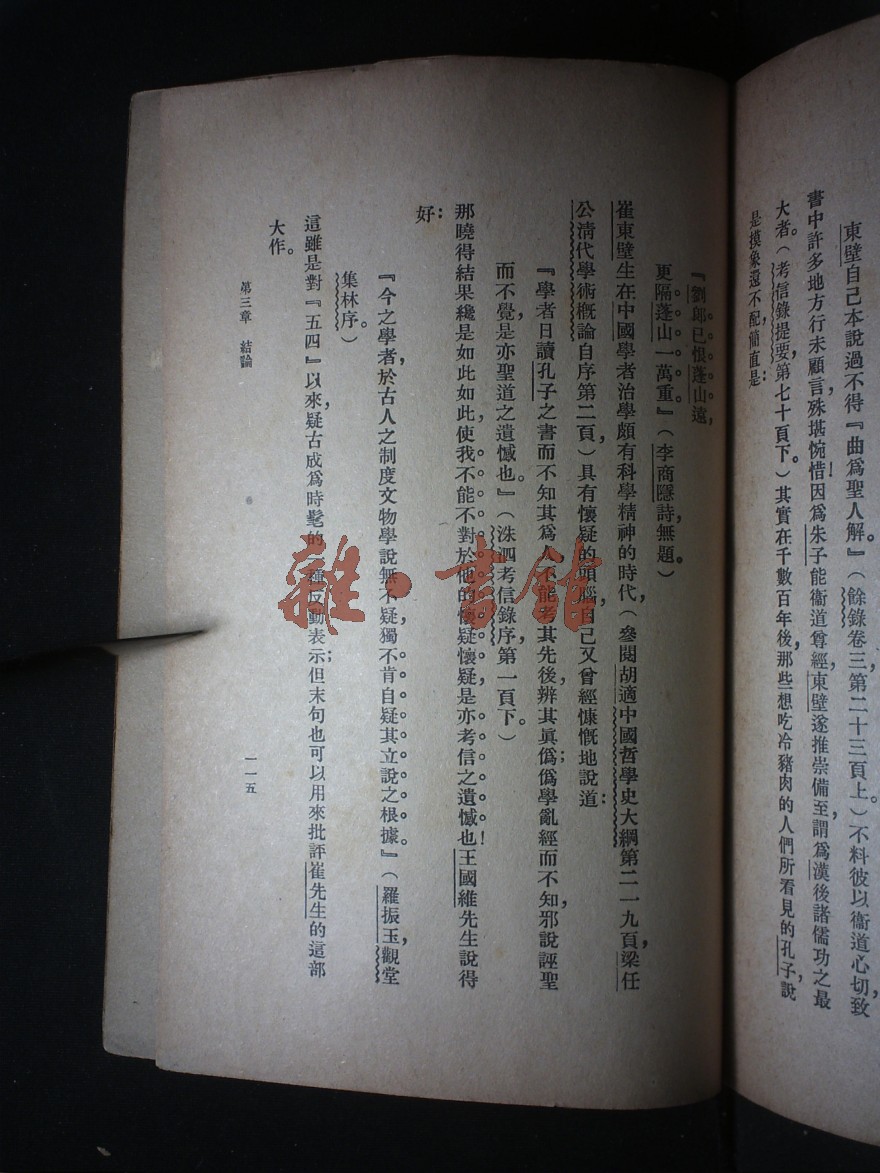 東壁自己本說過不得『曲爲聖人解。』（餘錄卷三第二十三頁上。）不料彼以衞道心切，致
書中許多地方行未顧言殊堪惋惜！因爲朱子能衞道尊經，東壁遂推崇備至，謂爲漢後諸儒功之最
大者。（考信錄提要第七十頁下。）其實在千數百年後，那些想吃冷豬肉的人們所看見的孔子說
是摸象還不配，簡直是：
『劉郎已恨蓬山遠，
更隔蓬山一萬重。』（李商隱詩，無題。）
崔東壁生在中國學者治學頗有科學精神的時代（參閱胡適中國哲學史大綱第二一九頁，梁任
公清代學術概論自序第二頁，）具有懷疑的頭腦，自己又曾經慷慨地說道：
『學者日讀孔子之書而不知其爲人，不能考其先後，辨其眞僞；僞學亂經而不知，邪說誣聖
而不覺，是亦聖道之遺憾也。』（洙泗考信錄序第一頁下。）
那曉得結果纔是如此如此，使我不能不對於他的懷疑懷疑，是亦考信之遺憾也！王國維先生說得
好：
『今之學者，於古人之制度文物學說無不疑，獨不肯自疑其立說之根據。』（羅振玉，觀堂
集林序。）
這雖是對『五四』以來，疑古成爲時髦的一種反動表示；但末句也可以用來批評崔先生的這部
大作。
第三章 結論
一一五
雜·書館